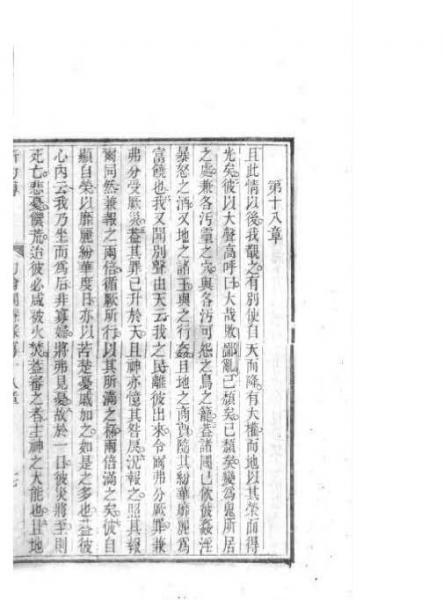 第十八章
且此情以後我觀之有別使自天而降有大權而地以其榮而得
光矣彼以大聲高呼曰大哉敗𠮓亂已頹矣已頹矣變為鬼所居
之處兼各污靈之穴與各污可怨之鳥之籠蓋諸國已飲彼姦淫
暴怒之酒又地之諸王與之行姦且地之商賈隨其紛華靡麗為
富饒也我又聞別聲由天云我之民離彼出來令爾弗分厥罪兼
弗分受厥災蓋其罪已升於天且神亦憶其咎戾況報之照其報
爾同然兼報之兩倍循厥所行以其所滿之杯兩倍滿之矣彼自
顯自榮以靡麗紛華度日亦以苦楚憂慼加之如是之多也蓋彼
心內云我乃坐而為后非寡婦將弗見憂故於一日彼災將至則
死亡悲憂饑荒迨彼必威被火焚蓋審之者主神之大能也且地